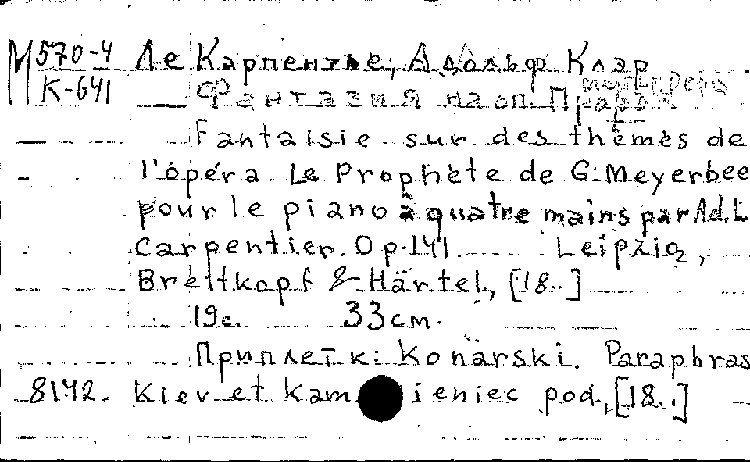 М 570-4 Ле Карпентье, Адольф Клар
К-641 Фантазия на оп. Пророк Мейербера
Fantaisie sur des thèmes de
l'opéra Le Prophète de G. Meyerbee
pour le piano à quatre mains par Ad. L
Carpentier. Op. 141 Leipzig,
Breitkopf & Härtel, [18..]
19 с. 33 см.
Приплетк: Konarski. Paraphras
8142. Kiev et Kam ieniec pod., [18..]